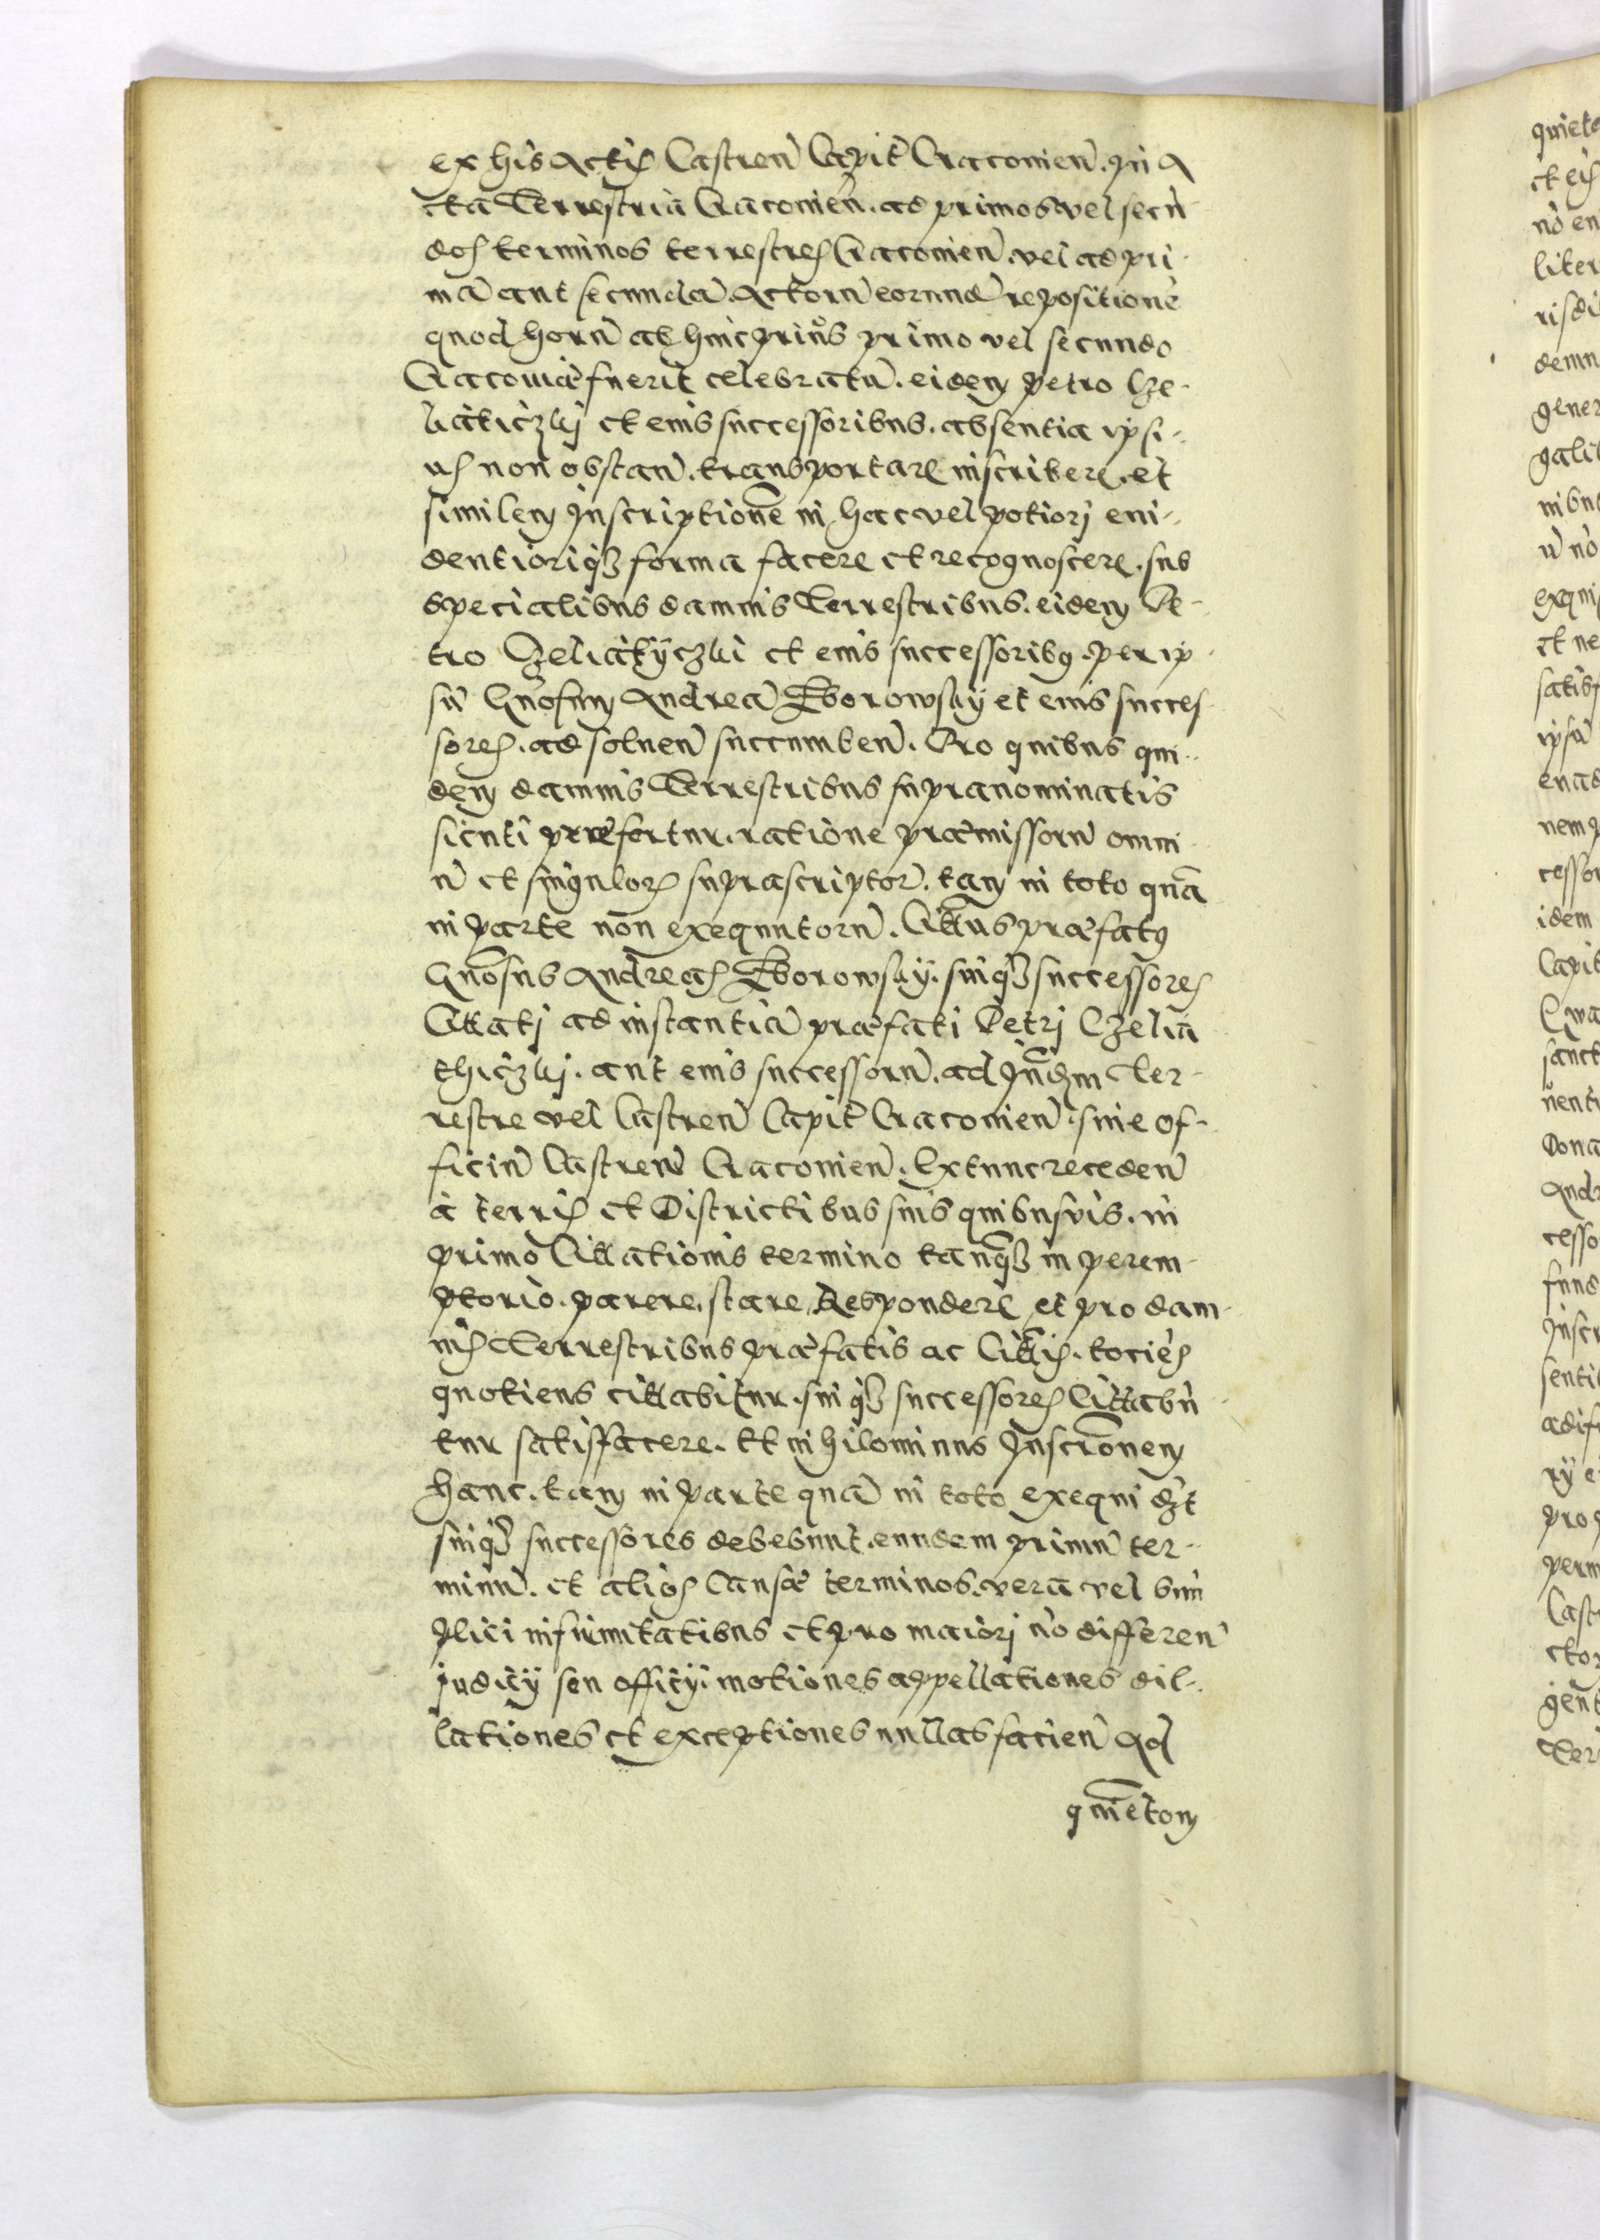 ex his Actis Castren̄ Capit̄ Cracovien̄. In A
cta Terrestria Cracovien̄. ad primos vel secū-
dos terminos terrestres Cracovien̄. vel ad pri-
mā aut secundā. Actorū eorundē repositionē
quod horū ab hinc prius primo vel secundo
Cracoviæ fuerit celebratū. eidem Petro Cze-
liaticzkj et eius successoribus. absentia ipsi-
us non obstan̄. transportare inscribere. et
similem Inscriptionē in hac vel potiorj evi-
dentioriq₃ forma facere et recognoscere. sub
specialibus damnis Terrestribus. eidem Pe-
tro Czeliatÿczki et eius successoribꝰ. per ip-
sū Gn̄osum Andreā Zborowskÿ et eius succes-
sores. ad soluen̄ succumben̄. Pro quibus qui-
dem damnis Terrestribus supranominatis
sicuti præfertur. ratione præmissorū omni-
ū et singulor̄ suprascriptor̄. tam in toto quā
in parte non exequutorū. Citt̄us præfatꝰ
Gn̄osus Andreas Zborowskÿ. suiq₃ successores
Cittatj ad instantiā præfati Petrj Czelia
thiczkj. aut eius successorū. ad Iūdm Ter-
restre vel Castren̄ Capit̄ Cracovien̄. siue of-
ficiū Castren̄ Cracovien̄. Extunc receden̄
à terris et Districtibus suis quibusvis. in
primo Cittationis termino tanq₃ in perem-
ptorio. parere, stare, Respondere et pro dam-
nis Terrestribus præfatis ac Citt̄is. tociēs
quotiens cittabitur. suiq₃ successores Cittabū-
tur satisfacere. Et nihilominus Inscr̄onem
hanc. tam in parte quā in toto exequi d₃t
suiq₃ successores debebunt. eundem primū ter-
minū. et alios Causæ terminos. vera vel sim
plici infirmitatibus et pro maiorj nō differen̄
judicÿ seu officÿ. motiones appellationes dil-
lationes et exceptiones nullas facien̄
quietom